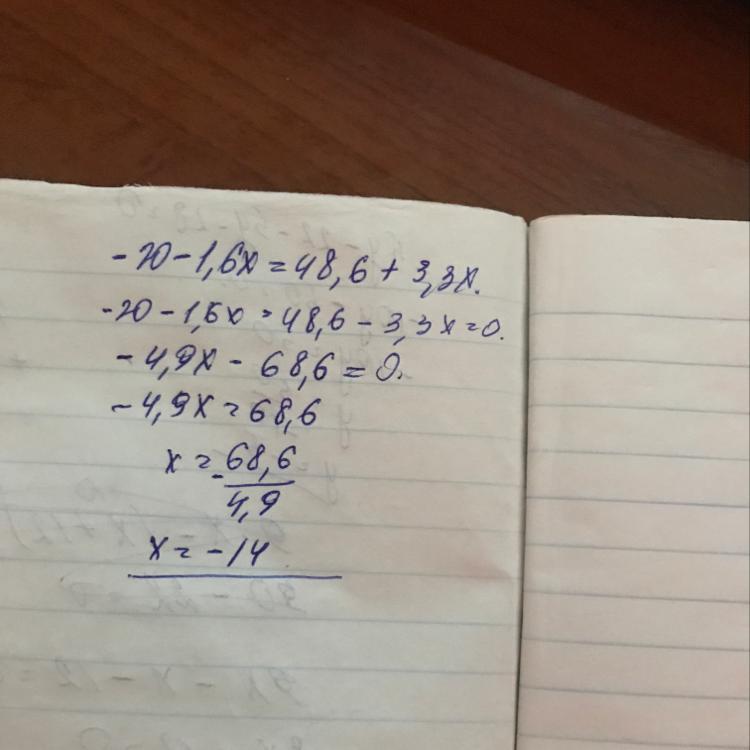 -20-1,6x=48,6+3,3x.
-20-1,6x=48,6-3,3x=0.
-4,9x-68,6=0.
-4,9x=68,6
x=-68,6/4,9
x=-14